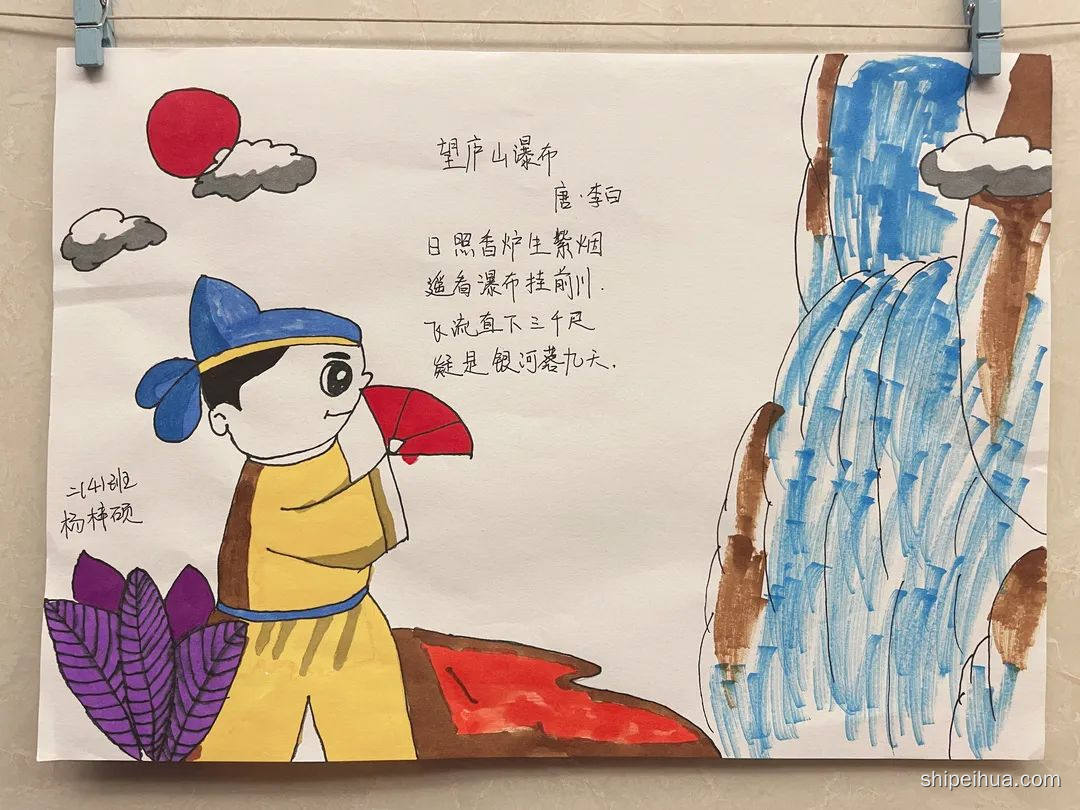 望庐山瀑布
唐·李白
日照香炉生紫烟
遥看瀑布挂前川.
飞流直下三千尺
疑是银河落九天.
二(4)班
杨梓硕
shipeihua.com